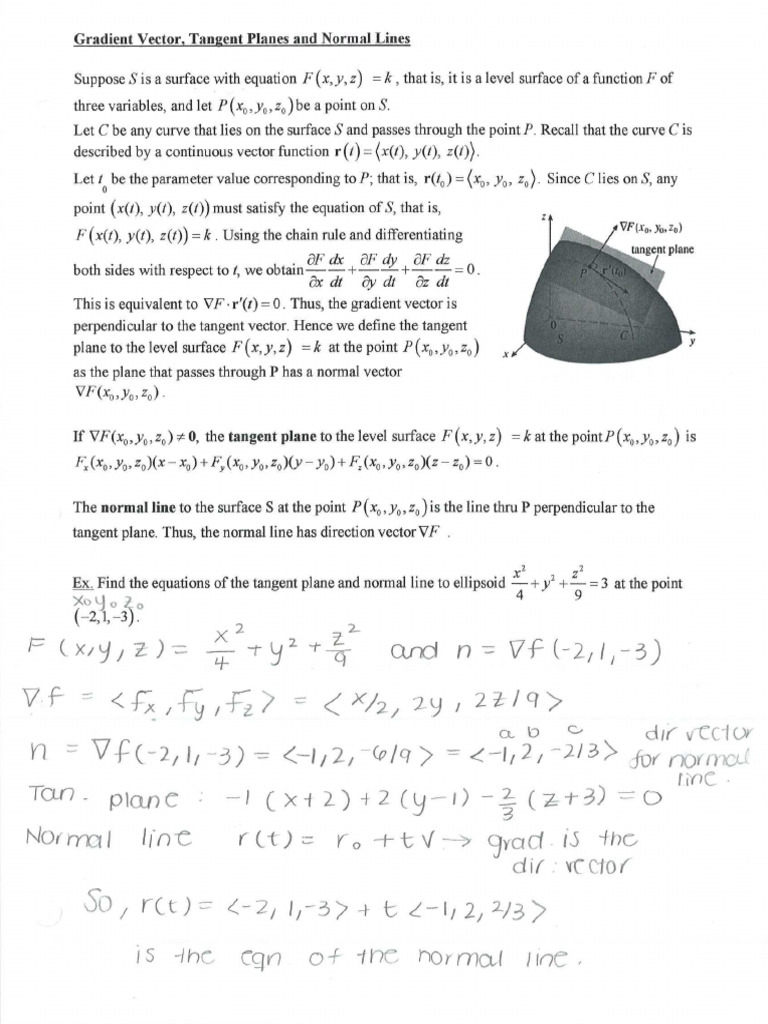 Gradient Vector, Tangent Planes and Normal Lines
Suppose S is a surface with equation F(x, y, z) = k, that is, it is a level surface of a function F of
three variables, and let P(x₀, y₀, z₀) be a point on S.
Let C be any curve that lies on the surface S and passes through the point P. Recall that the curve C is
described by a continuous vector function r(t) = ⟨x(t), y(t), z(t)⟩.
Let t₀ be the parameter value corresponding to P; that is, r(t₀) = ⟨x₀, y₀, z₀⟩. Since C lies on S, any
point (x(t), y(t), z(t)) must satisfy the equation of S, that is,
F(x(t), y(t), z(t)) = k. Using the chain rule and differentiating
both sides with respect to t, we obtain ∂F/∂x dx/dt + ∂F/∂y dy/dt + ∂F/∂z dz/dt = 0.
This is equivalent to ∇F · r'(t) = 0. Thus, the gradient vector is
perpendicular to the tangent vector. Hence we define the tangent
plane to the level surface F(x, y, z) = k at the point P(x₀, y₀, z₀)
as the plane that passes through P has a normal vector
∇F(x₀, y₀, z₀).
z
∇F(x₀, y₀, z₀)
tangent plane
P
r'(t₀)
0
S
C
x
y
If ∇F(x₀, y₀, z₀) ≠ 0, the tangent plane to the level surface F(x, y, z) = k at the point P(x₀, y₀, z₀) is
Fₓ(x₀, y₀, z₀)(x − x₀) + F_y(x₀, y₀, z₀)(y − y₀) + F_z(x₀, y₀, z₀)(z − z₀) = 0.
The normal line to the surface S at the point P(x₀, y₀, z₀) is the line thru P perpendicular to the
tangent plane. Thus, the normal line has direction vector ∇F .
Ex. Find the equations of the tangent plane and normal line to ellipsoid x²/4 + y² + z²/9 = 3 at the point
x₀ y₀ z₀
(−2, 1, −3).
F(x, y, z) = x²/4 + y² + z²/9 and n = ∇f(-2, 1, -3)
∇f = <fx, fy, fz> = <x/2, 2y, 2z/9>
a b c dir vector
n = ∇f(-2, 1, -3) = <-1, 2, -6/9> = <-1, 2, -2/3> for normal
line.
Tan. plane : -1(x+2) + 2(y-1) - 2/3(z+3) = 0
Normal line r(t) = r₀ + tv → grad. is the
dir. vector
So, r(t) = <-2, 1, -3> + t <-1, 2, 2/3>
is the eqn of the normal line.